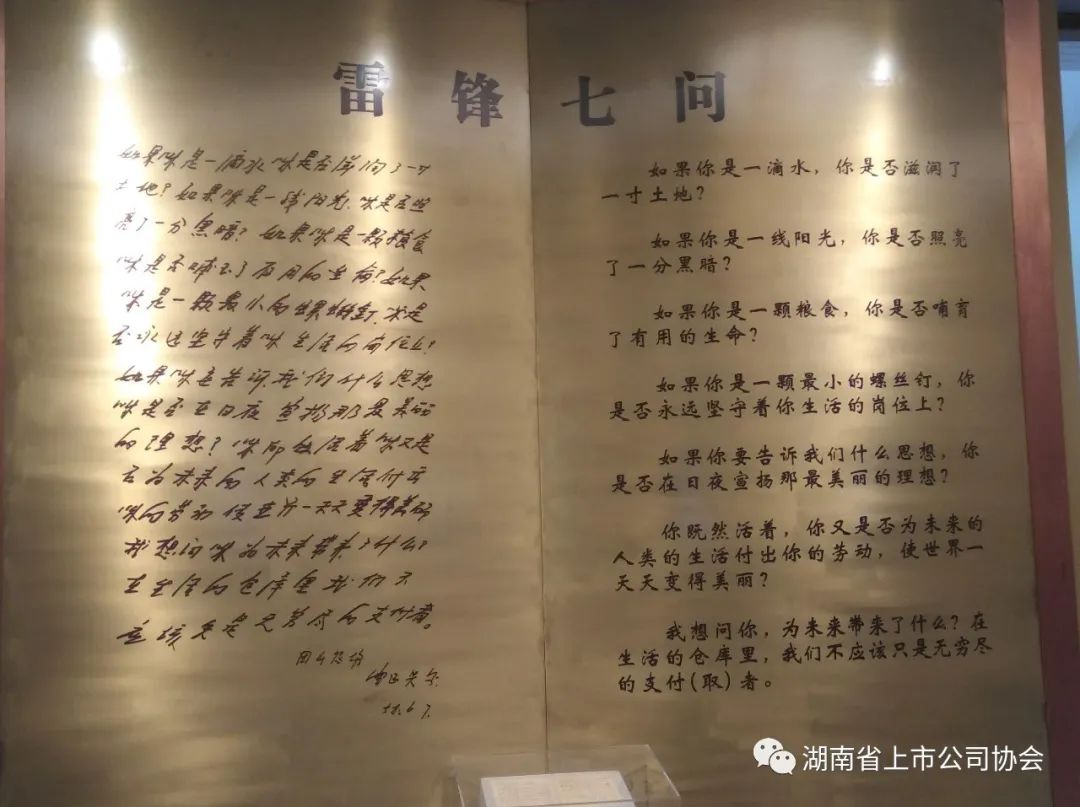 雷锋七问
如果你是一滴水你是否滋润了一寸
土地?如果你是一线阳光,你是否照
亮了一分黑暗?如果你是一颗粮食
你是否哺育了有用的生命?如果
你是一颗最小的螺丝钉,你是
否永远坚守着你生活的岗位上?
如果你要告诉我们什么思想
你是否在日夜宣扬那最美丽
的理想?你既然活着你又是
否为未来的人类的生活付出
你的劳动使世界一天天变得美丽
我想问你为未来带来了什么?
在生活的仓库里我们不
应该只是无穷尽的支付者。
如果你是一滴水,你是否滋润了
一寸土地?
如果你是一线阳光,你是否照亮
了一分黑暗?
如果你是一颗粮食,你是否哺育
了有用的生命?
如果你是一颗最小的螺丝钉,你
是否永远坚守着你生活的岗位上?
如果你要告诉我们什么思想,你
是否在日夜宣扬那最美丽的理想?
你既然活着,你又是否为未来的
人类的生活付出你的劳动,使世界一
天天变得美丽?
我想问你,为未来带来了什么?在
生活的仓库里,我们不应该只是无穷尽
的支付(取)者。
湖南省上市公司协会